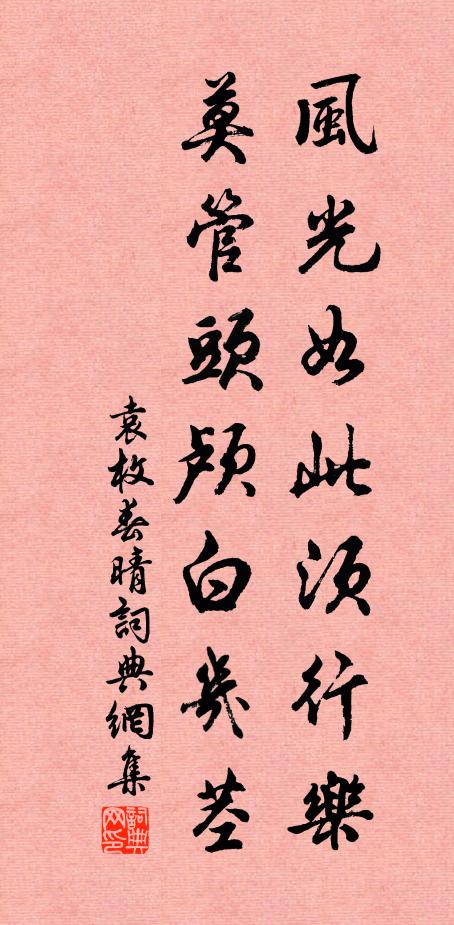 風光如此須行樂
莫管頭顱白幾莖
袁枚春晴詞典網集
詞典网印